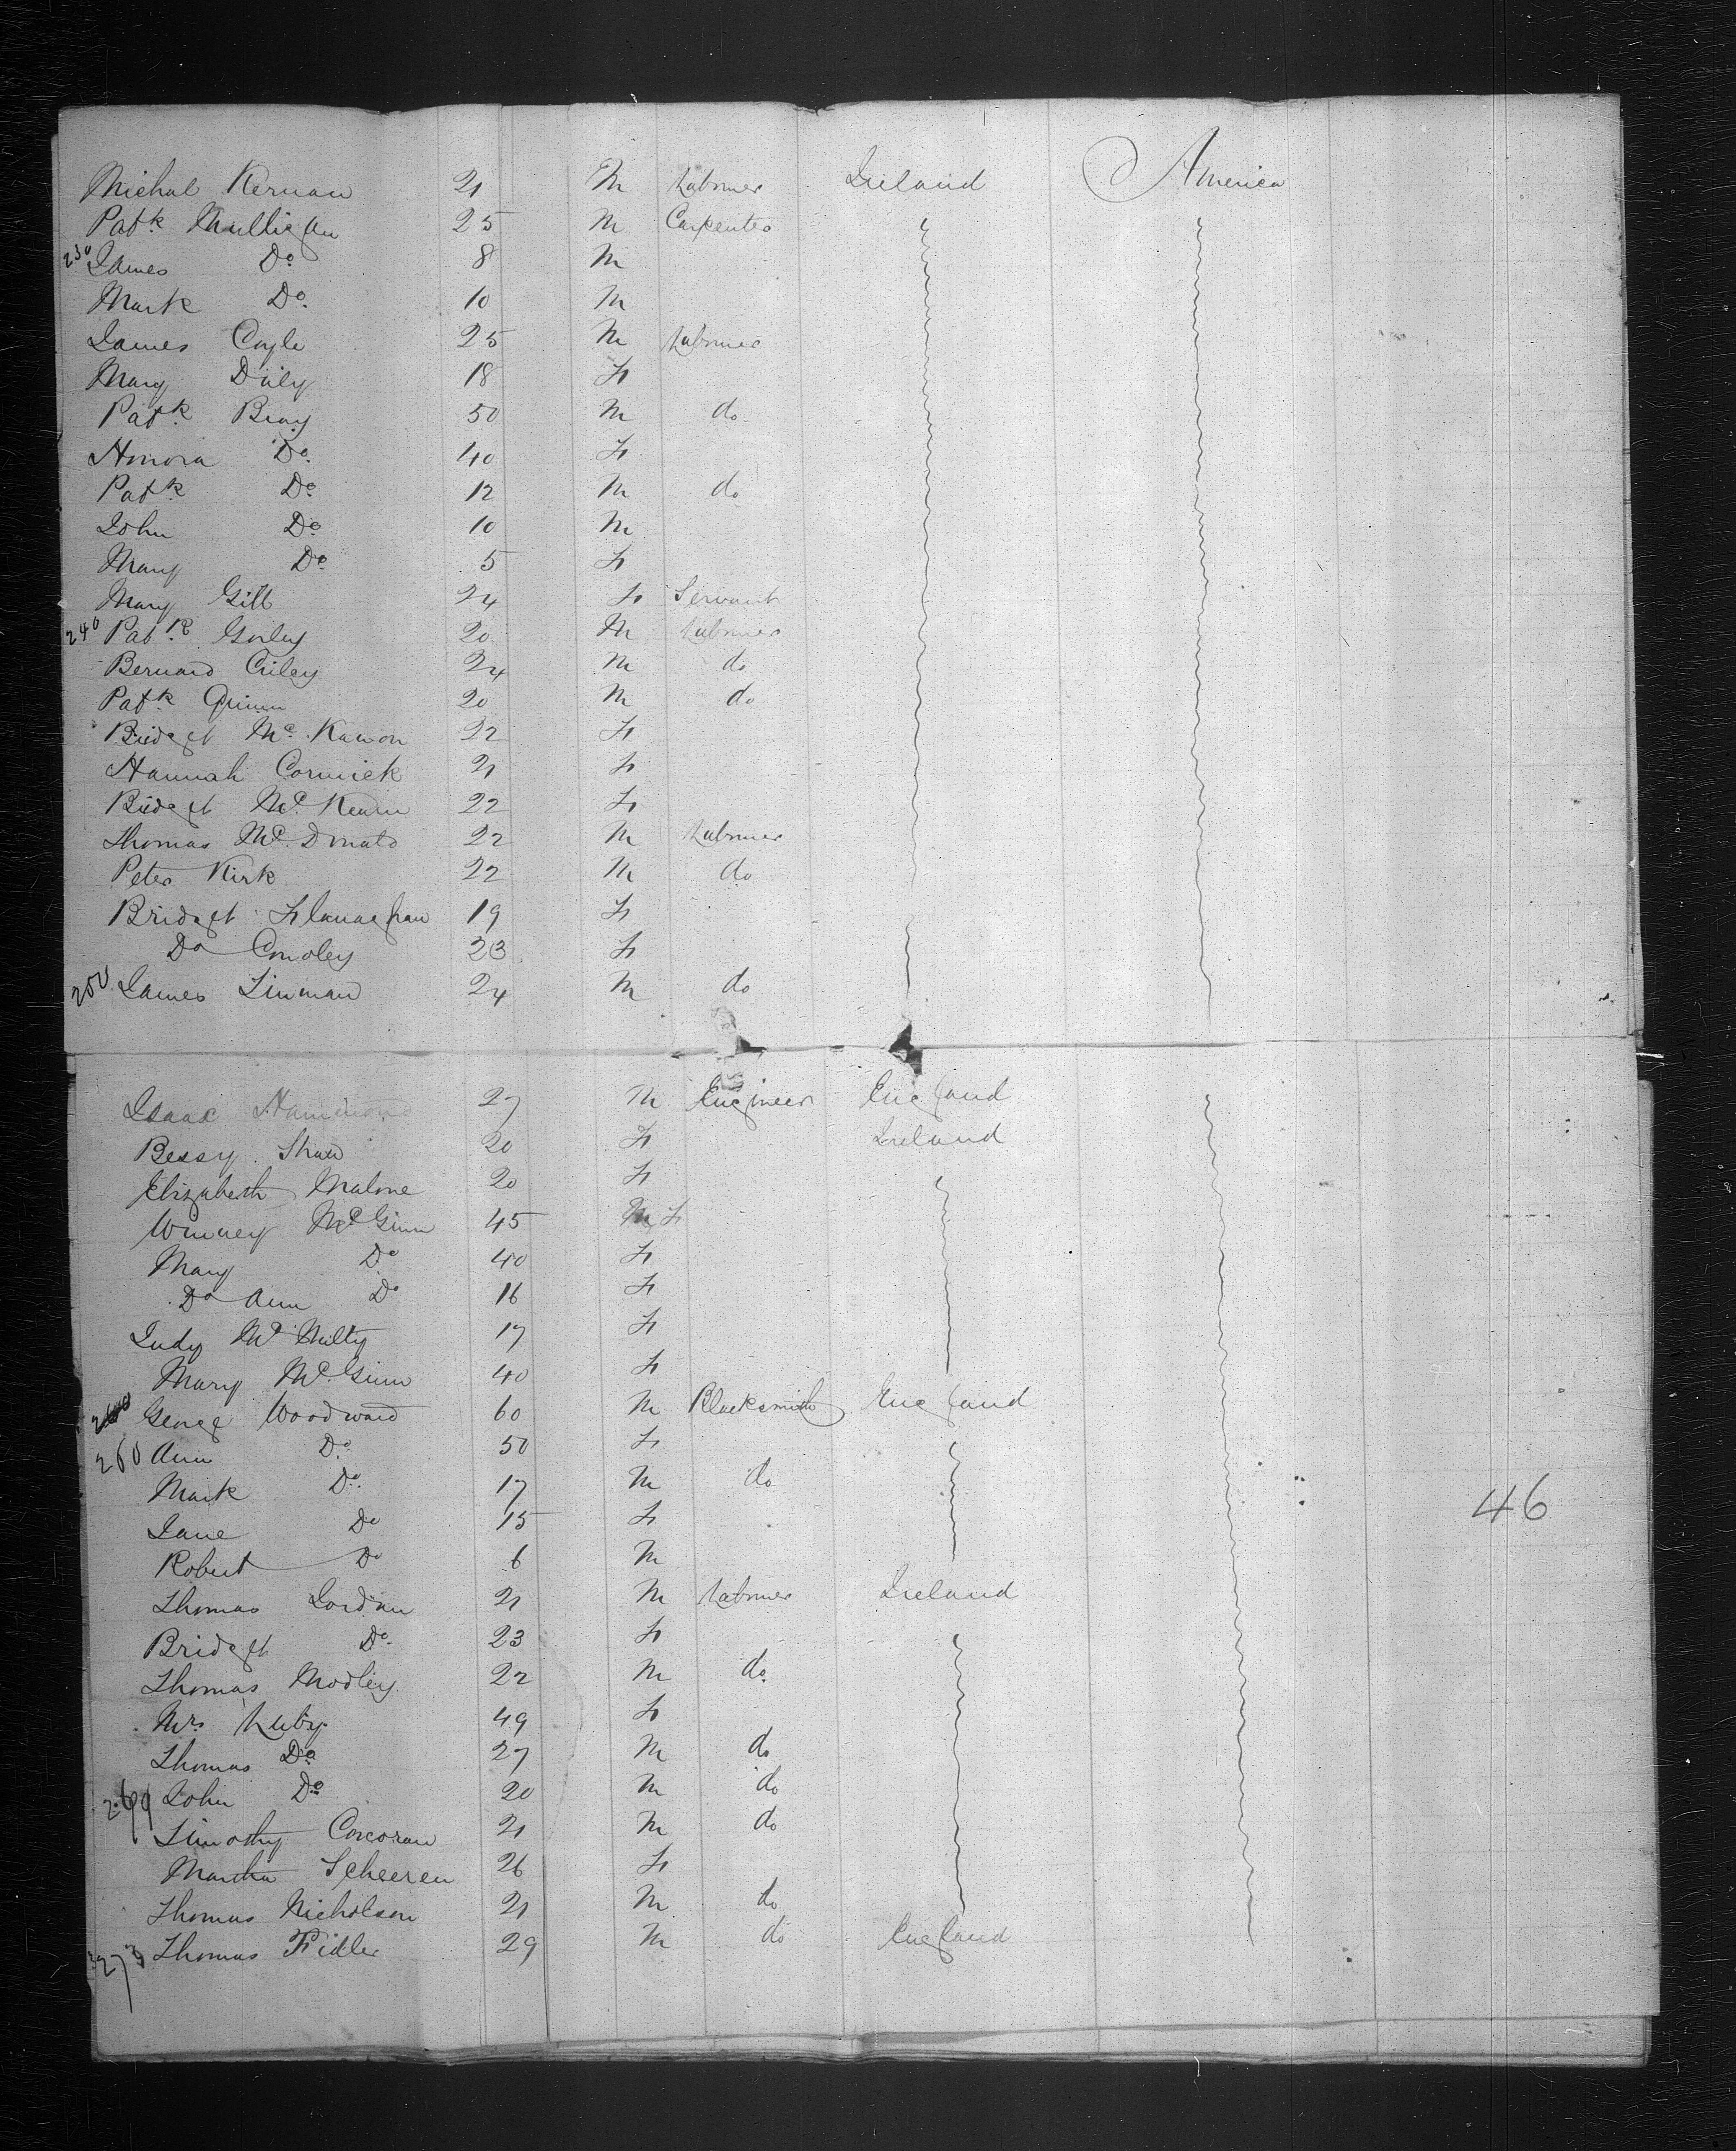 Michal Kernan 21 M Labourer Ireland America
Patk Mulligan 25 M Carpenter
230 James Do 8 M
Mark Do 10 M
James Coyle 25 M Labourer
Mary Daly 18 F
Patk Bray 50 M do
Honora Do 40 F
Patk Do 12 M do
John Do 10 M
Mary Do 5 F
Mary Gill 24 F Servant
240 Patk Gorley 20 M Labourer
Bernard Criley 24 M do
Patk Quinn 20 M do
Bridget Mc Kawon 22 F
Hannah Cormick 21 F
Bridget Mc Kearn 22 F
Thomas Mc Donald 22 M Labourer
Peter Kirk 22 M do
Bridget Flanaghan 19 F
Do Conoley 23 F
250 James Linman 24 M do
Isaac Hammond 27 M Engineer England
Bessy Shaw 20 F Ireland
Elizabeth Malone 20 F
Winney Mc Ginn 45 M F
Mary Do 40 F
Do Ann Do 16 F
Judy Mc Nulty 17 F
Mary Mc Ginn 40 F
George Woodward 60 M Blacksmith England
260 Ann Do 50 F
Mark Do 17 M do
Jane Do 15 F
46
Robert Do 6 M
Thomas Jordan 21 M Labourer Ireland
Bridget Do 23 F
Thomas Modley 22 M do
Mrs Luby 49 F
Thomas Do 27 M do
269 John Do 20 M do
Timothy Corcoran 21 M do
Martha Scheeren 26 F
Thomas Nicholson 21 M do
273 Thomas Fidler 29 M do England